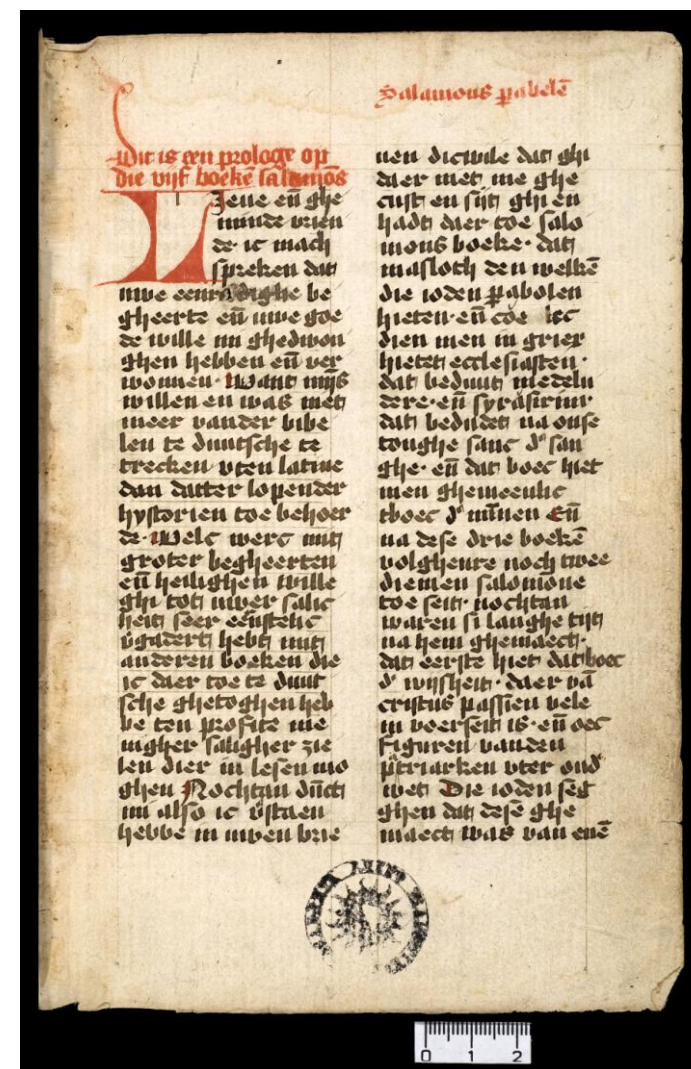 Salamons ꝑabelē
Dit is een prologe op
die vijf boeke salamōs
Lieue eñ ghe
minde vrien
de· ic mach
spreken dat
uwe eenuoudighe be
gheerte eñ uwe goe
de wille mi ghedwon
ghen hebben eñ ver
wonnen· Want mijns
willen en was niet
meer vander bibe
len te duutsche te
trecken vten latine
dan datter lopender
hystorien toe behoer
de· Welc werc mit
groter begheerten
eñ heilighen wille
ghi tot uwer salic
heit seer eernstelic
v̄gadert hebt mit
anderen boeken die
ic daer toe te duut
sche ghetoghen heb
be ten profite me
nigher saligher zie
len dier in lesen mo
ghen Nochtan dūct
mi also ic v̄staen
hebbe in uwen brie
uen dicwile dat ghi
daer niet me ghe
cust en sijt ghi en
hadt daer toe salo
mons boeke· dat
masloth den welkē
die ioden ꝑabolen
hieten· eñ coe lec
dien men in griex
hietet ecclesiasten·
dat beduut medelu
dere· eñ syrasirim
dat bedudet na onse
tonghe sanc dʾ san
ghe· eñ dat boec hiet
men ghemeenlic
tboec dʾ mīnen Eñ
na dese drie boekē
volghenre noch twee
diemen salomone
toe seit· nochtan
waren si langhe tijt
na hem ghemaect·
dat eerste hiet dat boec
dʾ wijsheit· daer vā
cristus passien vele
in voerseit is· eñ oec
figuren vanden
p̄triarken vter oudʾ
wet· Die ioden seg
ghen dat desē ghe
maect was van enē
0 1 2